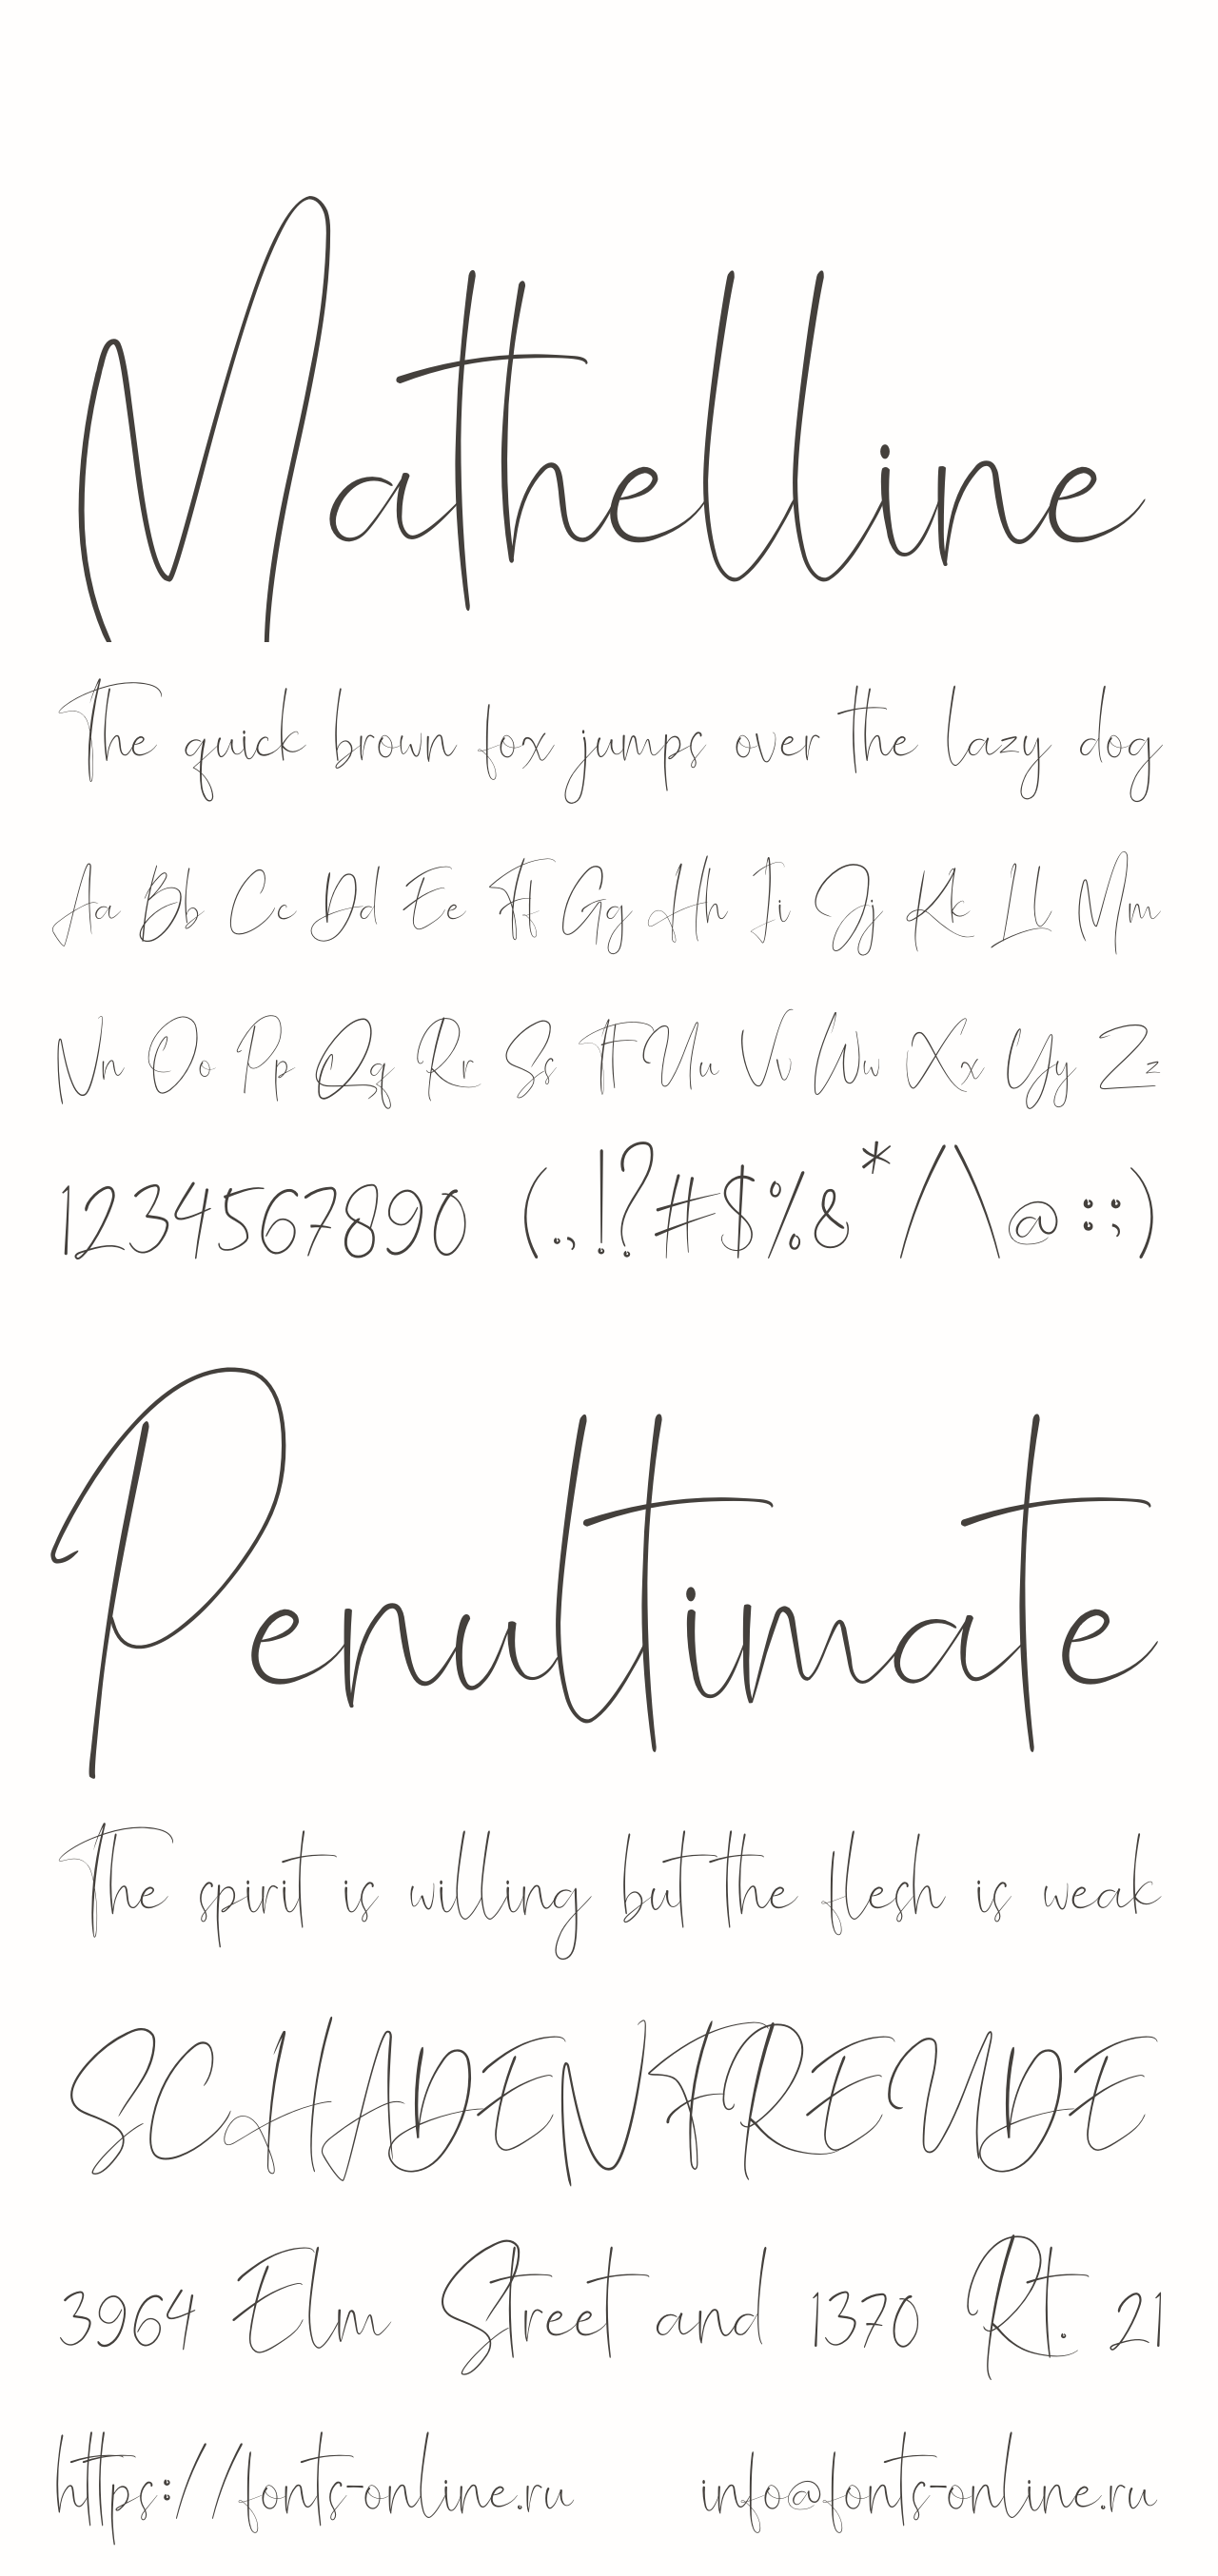 Mathelline
The quick brown fox jumps over the lazy dog
Aa Bb Cc Dd Ee Ff Gg Hh Ii Jj Kk Ll Mm
Nn Oo Pp Qq Rr Ss Tt Uu Vv Ww Xx Yy Zz
1234567890 (.,!?#$%&*/\@:;)
Penultimate
The spirit is willing but the flesh is weak
SCHADENFREUDE
3964 Elm Street and 1370 Rt. 21
https://fonts-online.ru info@fonts-online.ru